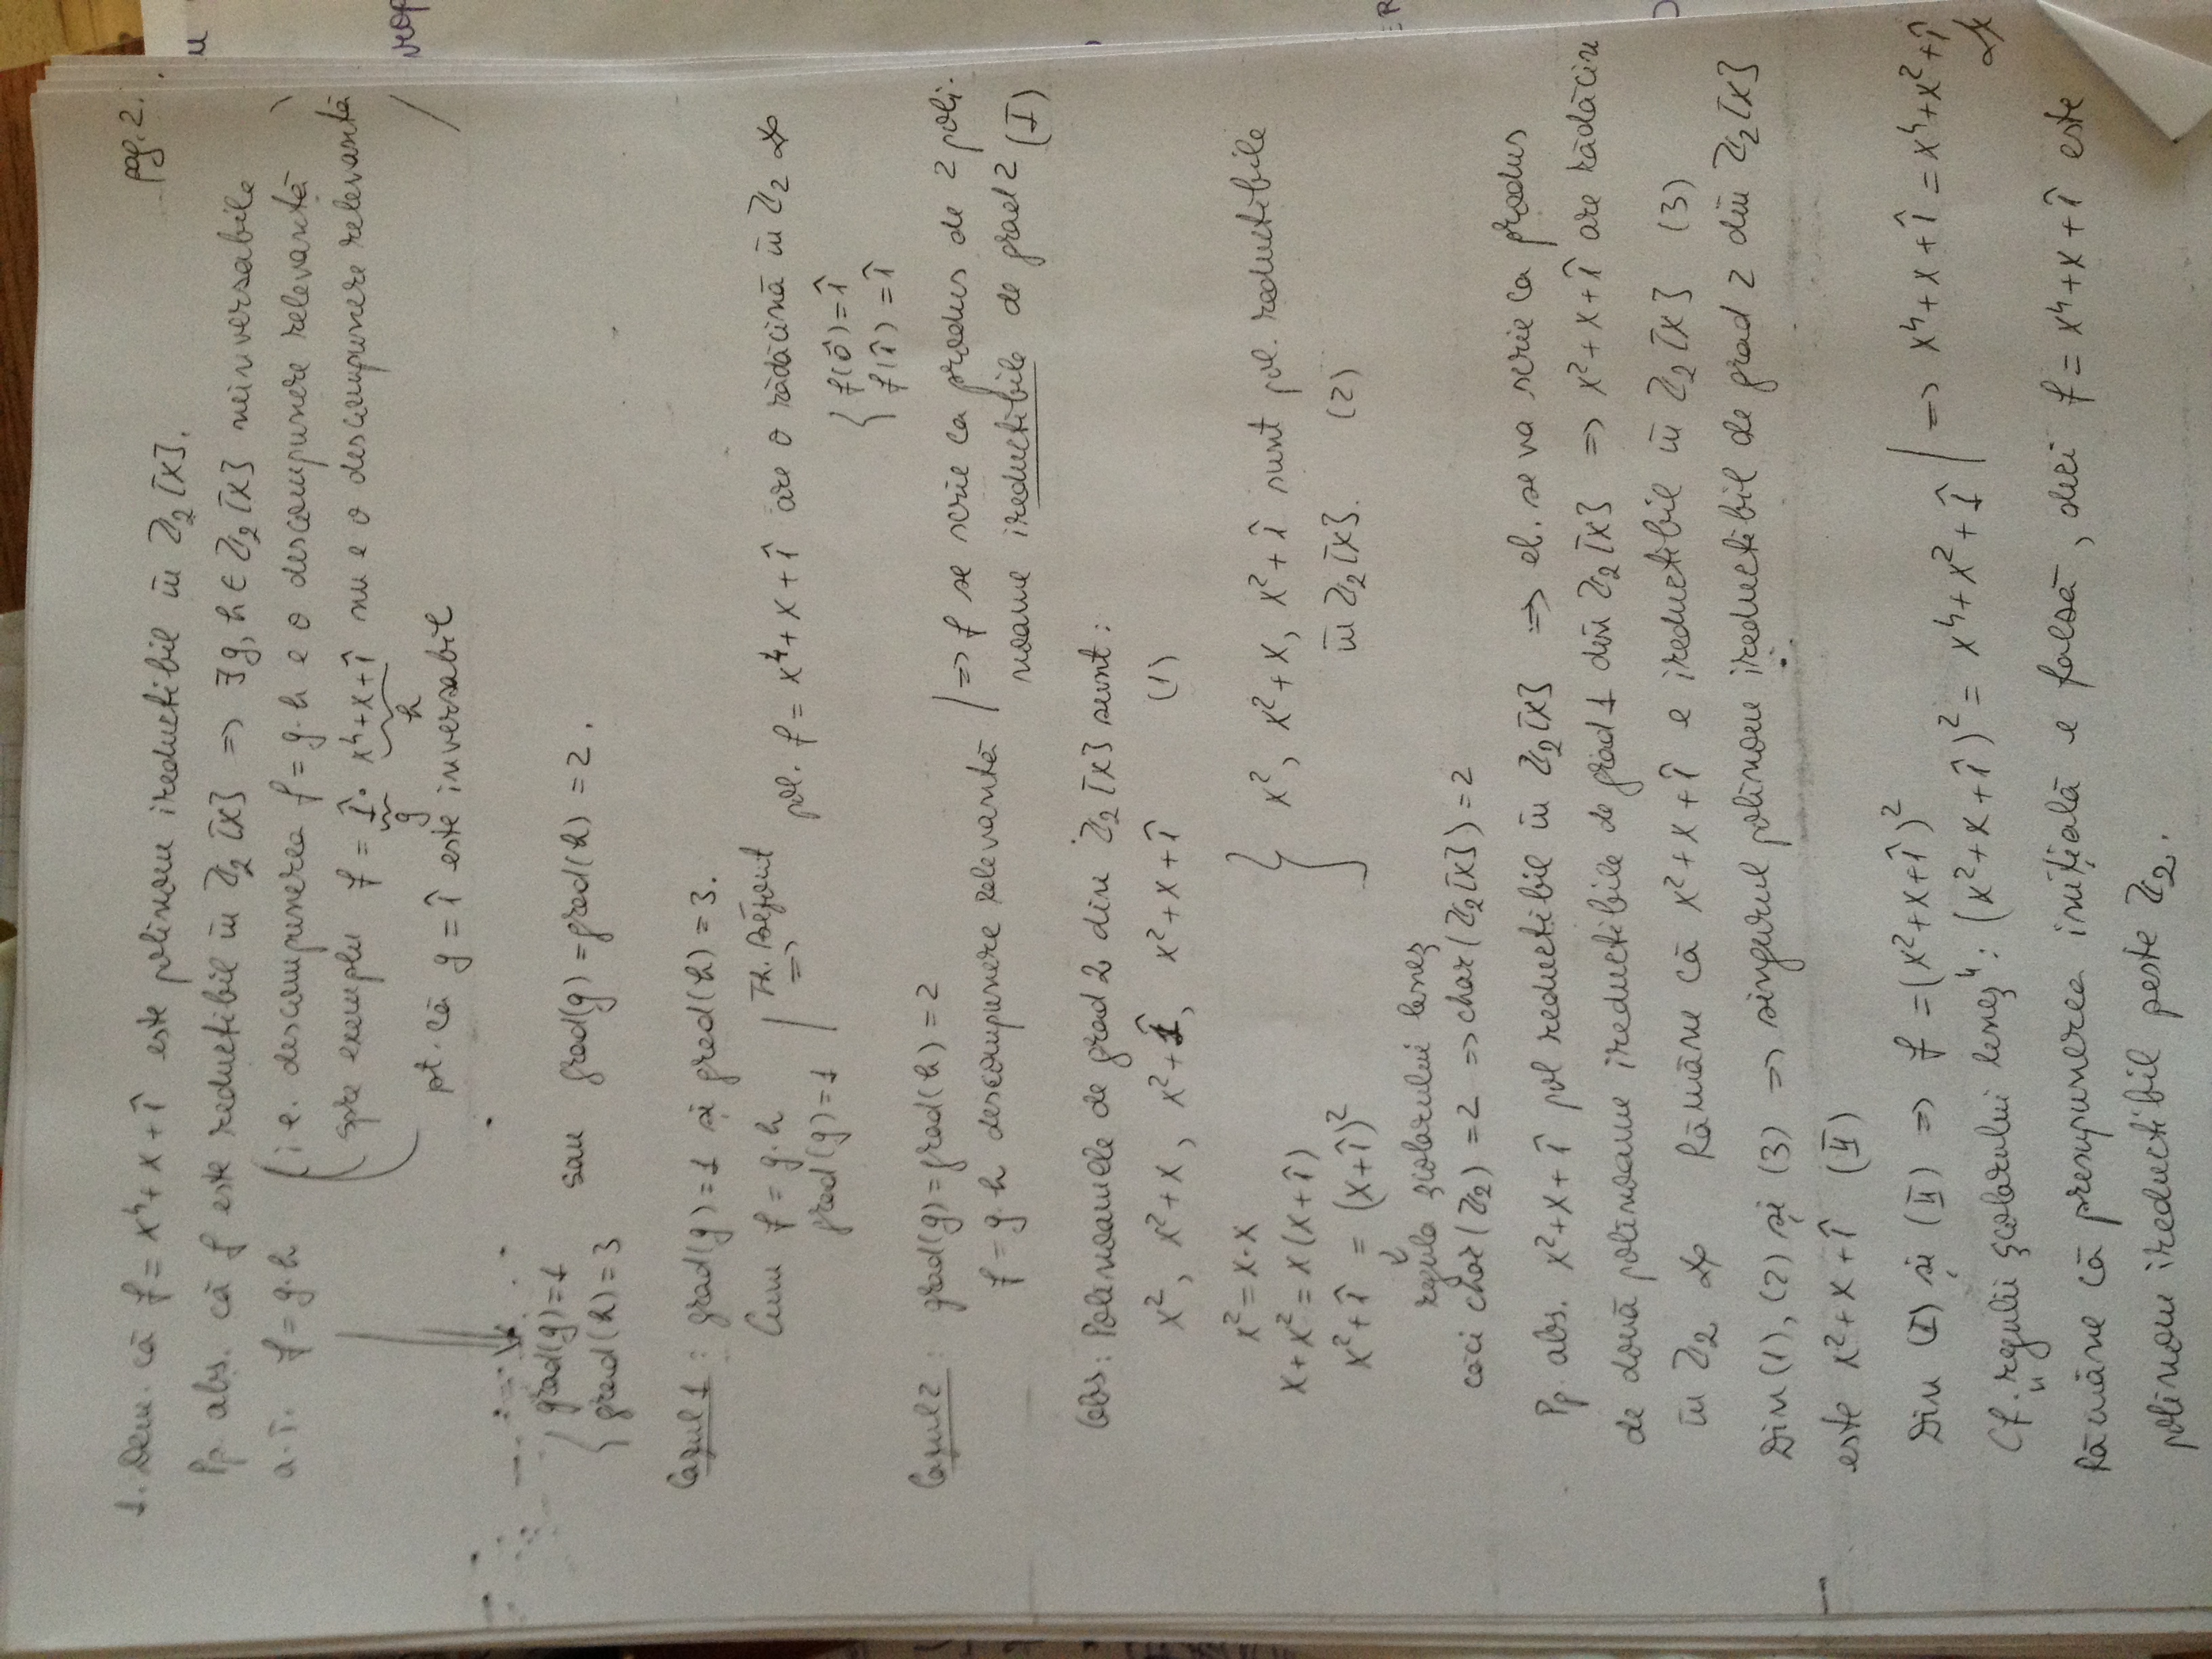 pag. 2.
1. Dem. că f = x⁴ + x + 1̂ este polinom ireductibil în ℤ₂[x].
Pp. abs. că f este reductibil în ℤ₂[x] => ∃ g, h ∈ ℤ₂[x] neinversabile
a.î. f = g·h (i.e. descompunerea f = g·h e o descompunere relevantă
spre exemplu f = 1̂ · x⁴+x+1̂ nu e o descompunere relevantă
g h
pt. că g = 1̂ este inversabil)
{ grad(g) = 1
grad(h) = 3 sau grad(g) = grad(h) = 2.
Cazul 1: grad(g) = 1 și grad(h) = 3.
Cum f = g·h | Th. Bézout => pol. f = x⁴ + x + 1̂ are o rădăcină în ℤ₂
grad(g) = 1
{ f(0̂) = 1̂
f(1̂) = 1̂
Cazul 2: grad(g) = grad(h) = 2
f = g·h descompunere relevantă | => f se scrie ca produs de 2 poli-
noame ireductibile de grad 2 (I)
Obs: Polinoamele de grad 2 din ℤ₂[x] sunt:
x², x²+x, x²+1̂, x²+x+1̂ (1)
x² = x·x
x+x² = x(x+1̂)
x²+1̂ = (x+1̂)²
} x², x²+x, x²+1̂ sunt pol. reductibile
în ℤ₂[x]. (2)
regula școlarului leneș
căci char(ℤ₂) = 2 => char(ℤ₂[x]) = 2
Pp. abs. x²+x+1̂ pol reductibil în ℤ₂[x] => el. se va scrie ca produs
de două polinoame ireductibile de grad 1 din ℤ₂[x] => x²+x+1̂ are rădăcin
în ℤ₂ Rămâne că x²+x+1̂ e ireductibil în ℤ₂[x] (3)
Din (1), (2) și (3) => singurul polinom ireductibil de grad 2 din ℤ₂[x]
este x²+x+1̂ (II)
Din (I) și (II) => f = (x²+x+1̂)²
Cf. „regulii școlarului leneș": (x²+x+1̂)² = x⁴+x²+1̂ | => x⁴+x+1̂ = x⁴+x²+1̂
Rămâne că presupunerea inițială e falsă, deci f = x⁴+x+1̂ este
polinom ireductibil peste ℤ₂.